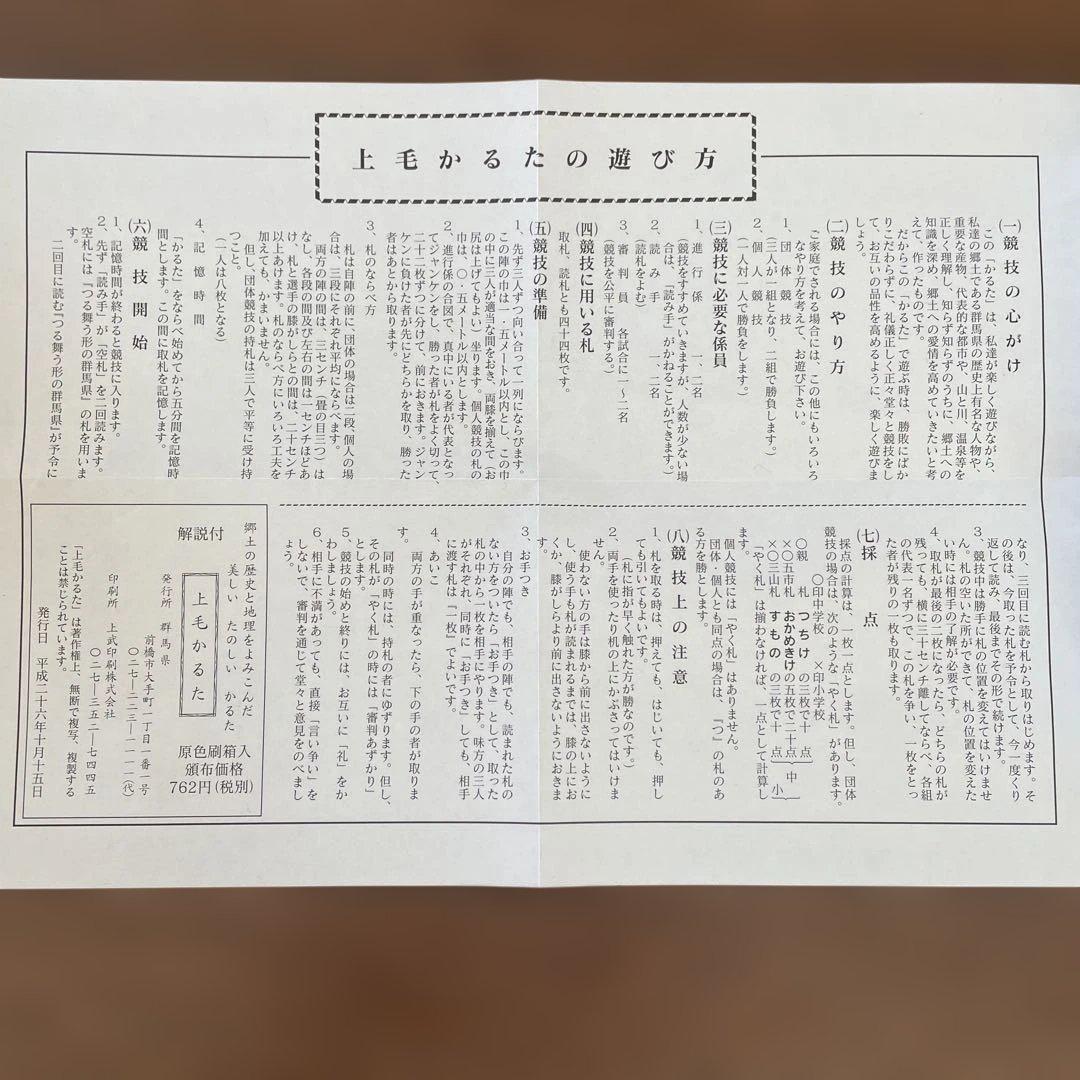 上毛かるたの遊び方
(一)競技の心がけ
この「かるた」は、私達が楽しく遊びながら、
私達の郷土である群馬県の歴史上有名な人物や、
重要な産物、代表的な都市や、山と川、温泉等を
正しく理解し、知らず知らずのうちに、郷土への
知識を深め、郷土への愛情を高めていきたいと考
えて、作ったものです。
だからこの「かるた」で遊ぶ時は、勝敗にばか
りこだわらずに、礼儀正しく正々堂々と競技をし
て、お互いの品性を高めるように、楽しく遊びま
しょう。
(二)競技のやり方
ご家庭でされる場合には、この他にもいろいろ
なやり方を考えて、お遊び下さい。
1、団体競技
(三人が一組となり、二組で勝負します。)
2、個人競技
(一人対一人で勝負をします。)
(三)競技に必要な係員
1、進行係 一、二名
(競技をすすめていきますが、人数が少ない場
合は、「読み手」がかねることができます。)
2、読み手 一、二名
(読札をよむ)
3、審判員 各試合に一〜二名
(競技を公平に審判する。)
(四)競技に用いる札
取札、読札とも四十四枚です。
(五)競技の準備
1、先ず三人ずつ向い合って一列にならびます。
この陣の巾は一・五メートル以内とし、この巾
の中に三人が適当な間をおき、両膝を揃えて(お
尻は上げてもよい)坐ります。個人競技の札の
巾は一、〇・五メートル以内とします。
2、進行係の合図で、真中にいる者が代表となっ
てジャンケンをし、勝った者が札をよく切って、
二十二枚ずつに分けて、前におきます。ジャン
ケンに負けた者が先にどちらかを取り、勝った
者はあとから取ります。
3、札のならべ方
札は自陣の前に、団体の場合は二段、個人の場
合は、三段にそれぞれ平均にならべます。
両方の陣の間は、三センチ(畳の目三つ)は
なし、各段の間及び左右の間は一センチほどあ
け、札と選手の膝がしらとの間は、二十センチ
以上あけます。札のならべ方にいろいろ工夫を
加えても、かまいません。
但し、団体競技の持札は三人で平等に受け持
つこと。
(一人は八枚となる)
4、記憶時間
「かるた」をならべ始めてから五分間を記憶時
間とします。この間に取札を記憶します。
(六)競技開始
1、記憶時間が終わると競技に入ります。
2、先ず「読み手」が「空札」を二回読みます。
空札には『つる舞う形の群馬県』の札を用いま
す。
二回目に読む『つる舞う形の群馬県』が予令に
なり、三回目に読む札から取りはじめます。そ
の後は、今取った札を予令として、今一度くり
返して読み、最後までその形で続けます。
3、競技中は勝手に札の位置を変えてはいけませ
ん。札の空いた所ができて、札の位置を変えた
い時には相手の了解が必要です。
4、取札が最後の二枚になったら、どちらの札が
残っても、横に三十センチ離してならべ、各組
の代表一名ずつで、この札を争い、一枚をとっ
た者が残りの一枚も取ります。
(七)採点
採点の計算は、一枚一点とします。但し、団体
競技の場合は、次のような「やく札」があります。
〇印中学校 ×印小学校
〇親札 つちけの三枚で十点
×〇五市札 おかめきけの五枚で二十点 中
×〇三山札 すもの の三枚で十点 小
「やく札」は揃わなければ、一点として計算し
ます。
個人競技には「やく札」はありません。
団体・個人とも同点の場合は、「つ」の札のあ
る方を勝とします。
(八)競技上の注意
1、札を取る時は、押えても、はじいても、押し
ても引いてもよいです。
(札に指が早く触れた方が勝なのです。)
2、両手を使ったり札の上にかぶさってはいけま
せん。
使わない方の手は膝から前に出さないように
し、使う手も札が読まれるまでは、膝の上にお
くか、膝がしらより前に出さないようにおきま
す。
3、お手つき
自分の陣でも、相手の陣でも、読まれた札の
ない方をついたら「お手つき」として、取った
札の中から一枚を相手にやります。味方の三人
がそれぞれ、同時に「お手つき」しても、相手
に渡す札は『一枚』でよいです。
4、あいこ
両方の手が重なったら、下の手の者が取りま
す。
同時の時には、持札の者にゆずります。但し、
その札が「やく札」の時には「審判あずかり」
とします。
5、競技の始めと終りには、お互いに「礼」をか
わしましょう。
6、相手に不満があっても、直接「言い争い」を
しないで、審判を通じて堂々と意見をのべまし
ょう。
郷土の歴史と地理をよみこんだ
美しい たのしい かるた
解説付
上毛かるた
原色刷箱入
頒布価格
762円(税別)
発行所 群馬県
前橋市大手町一丁目一番一号
〇二七―二二三―一一一一(代)
印刷所 上武印刷株式会社
〇二七―三五二―七四四五
「上毛かるた」は著作権上、無断で複写、複製する
ことは禁じられています。
発行日 平成二十六年十月十五日